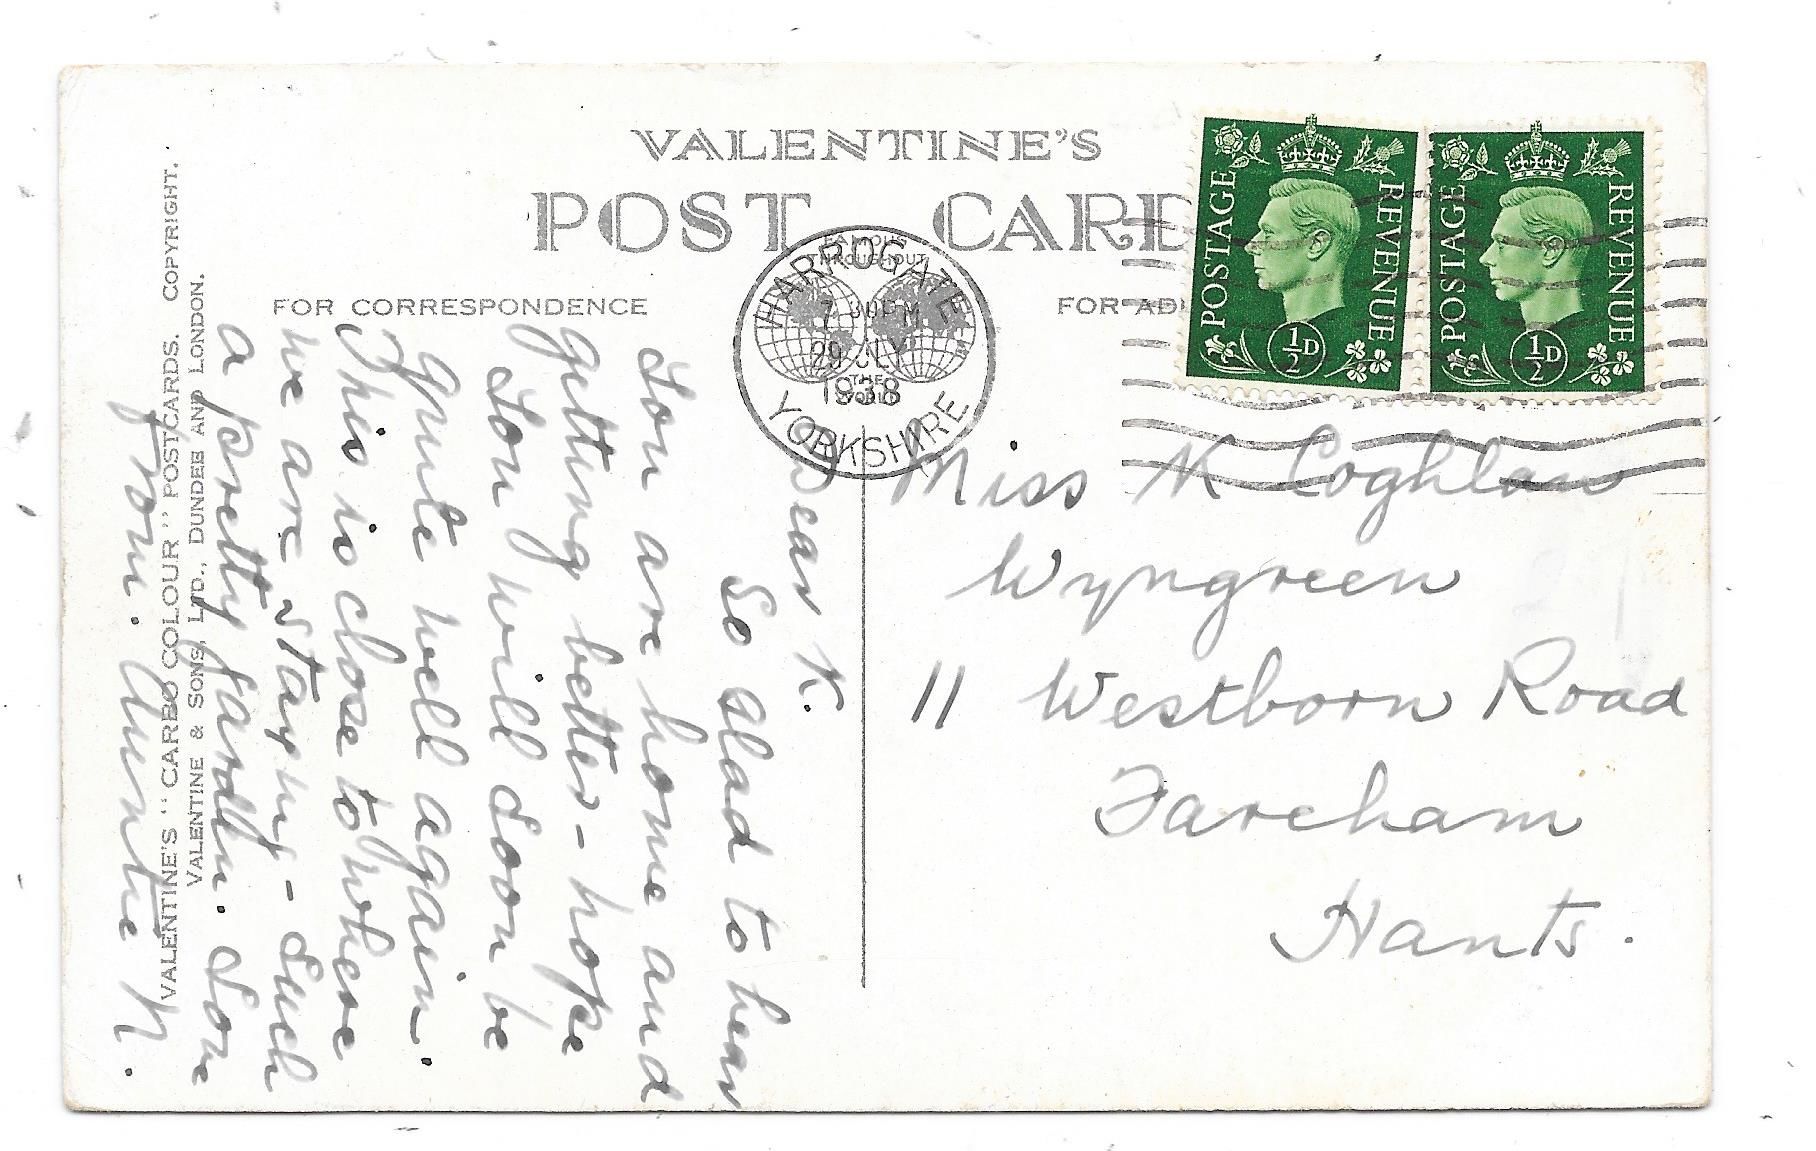 VALENTINE'S
POST CARD
FOR CORRESPONDENCE
FOR AD
HARROGATE
YORKSHIRE
FAMOUS
THROUGHOUT
THE
WORLD
7 30PM
29 JLY
1938
POSTAGE REVENUE
½D
POSTAGE REVENUE
½D
VALENTINE'S "CARBO COLOUR" POSTCARDS. COPYRIGHT.
VALENTINE & SONS, LTD., DUNDEE AND LONDON.
Dear K.
So glad to hear
You are home and
getting better - hope
You will soon be
quite well again.
This is close to where
we are staying - such
a pretty garden. Love
from. Auntie N.
Miss K Coghlan
Wyngreen
11 Westborn Road
Fareham
Hants.